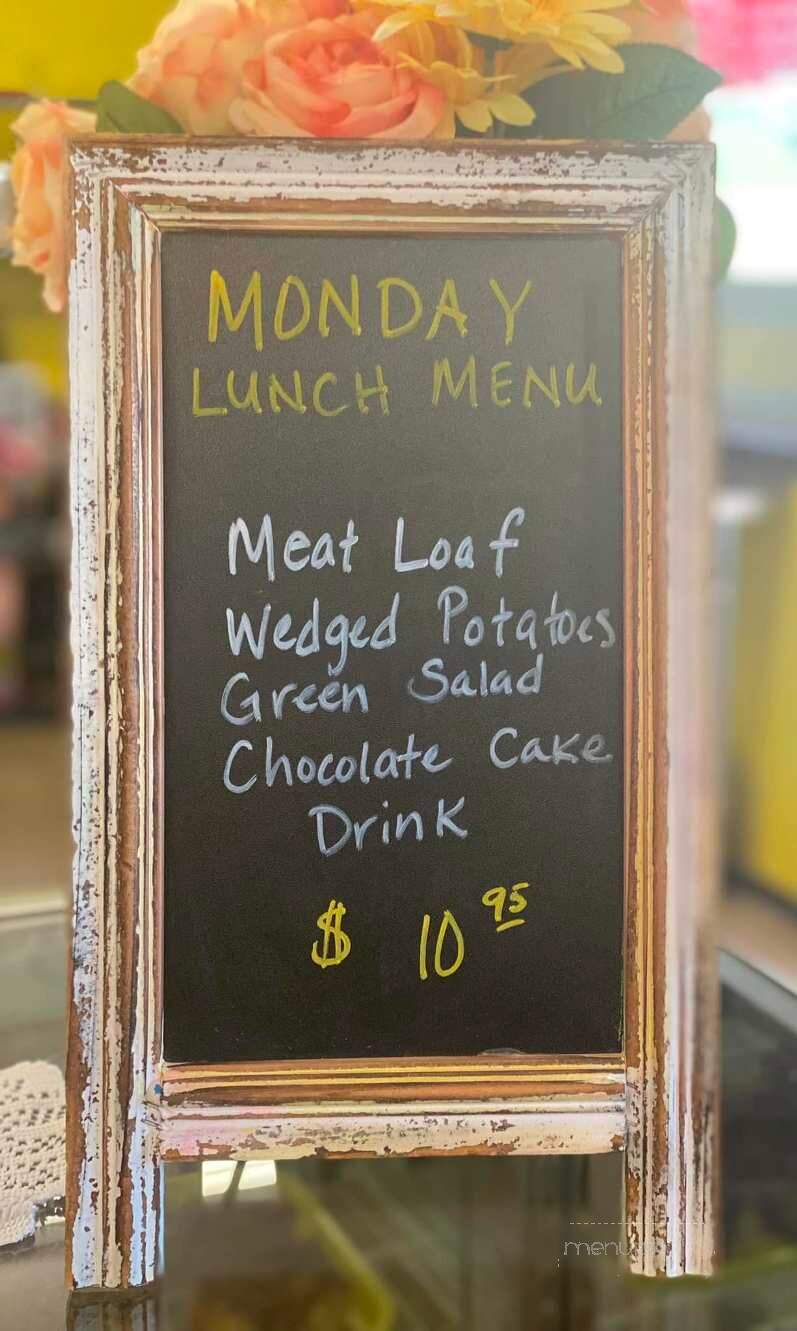 MONDAY
LUNCH MENU
Meat Loaf
Wedged Potatoes
Green Salad
Chocolate Cake
Drink
$ 10 95